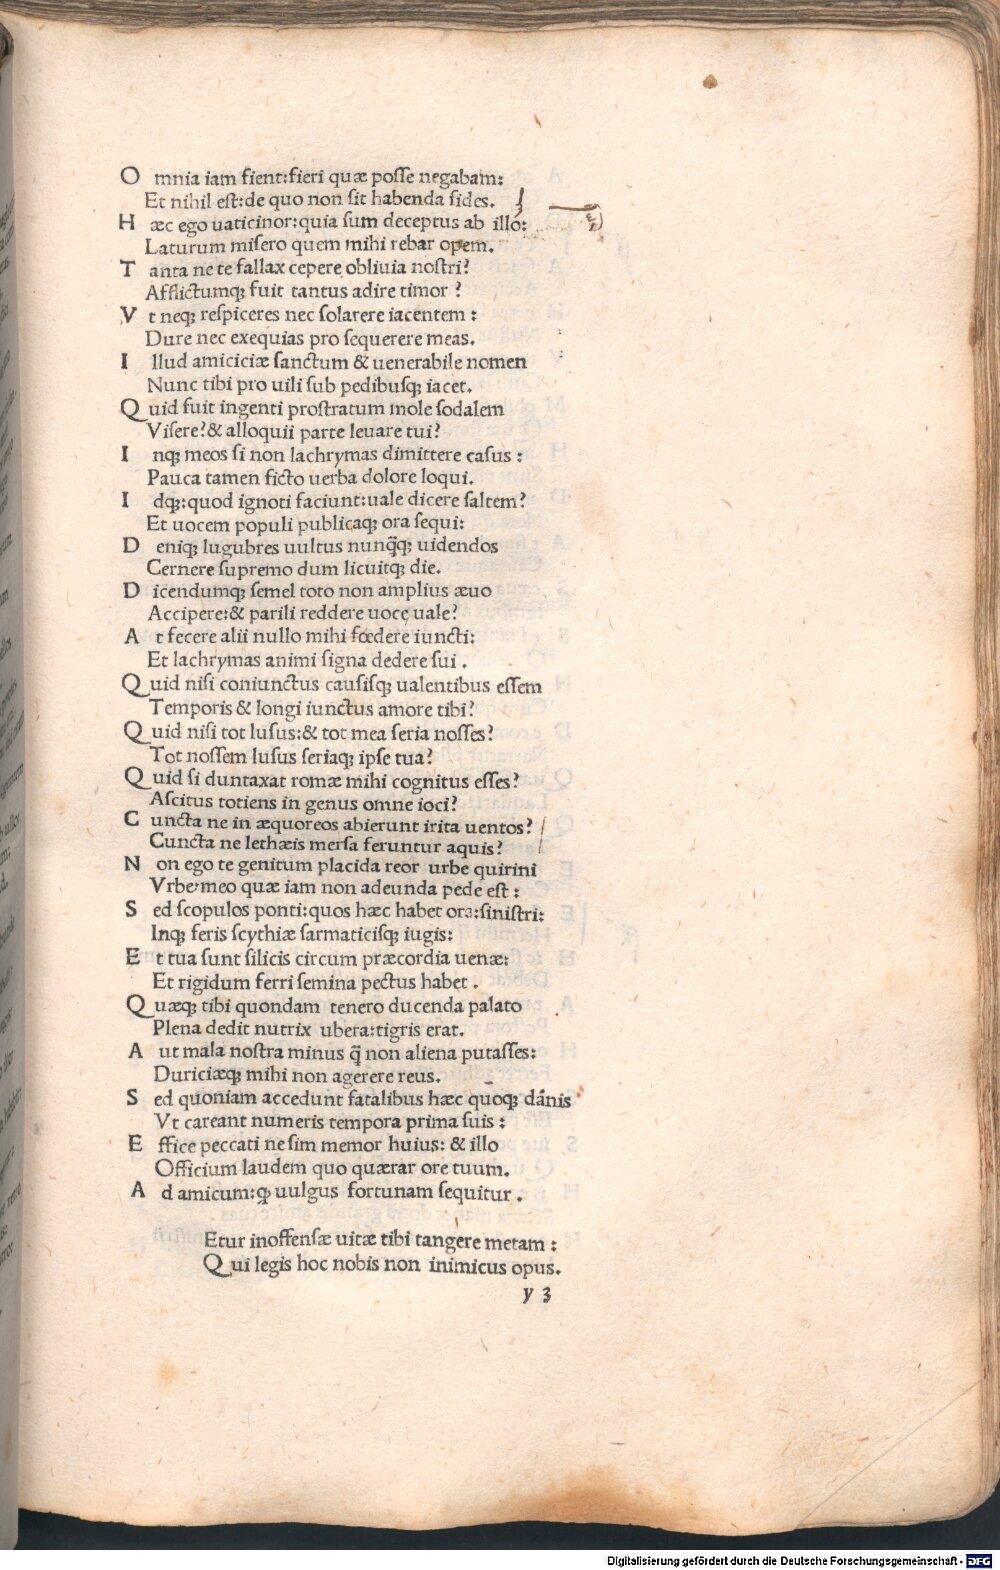 O mnia iam fient:fieri quæ posse negabam:
Et nihil est:de quo non sit habenda fides.
H æc ego uaticinor:quia sum deceptus ab illo:
Laturum misero quem mihi rebar opem.
T anta ne te fallax cepere obliuia nostri?
Afflictumqꝫ fuit tantus adire timor ?
V t neqꝫ respiceres nec solarere iacentem :
Dure nec exequias pro sequerere meas.
I llud amiciciæ sanctum & uenerabile nomen
Nunc tibi pro uili sub pedibusqꝫ iacet.
Q uid fuit ingenti prostratum mole sodalem
Visere?& alloquii parte leuare tui?
I nqꝫ meos si non lachrymas dimittere casus :
Pauca tamen ficto uerba dolore loqui.
I dqꝫ:quod ignoti faciunt:uale dicere saltem?
Et uocem populi publicaqꝫ ora sequi:
D eniqꝫ lugubres uultus nunq̃qꝫ uidendos
Cernere supremo dum licuitqꝫ die.
D icendumqꝫ semel toto non amplius æuo
Accipere:& parili reddere uoce uale?
A t fecere alii nullo mihi fœdere iuncti:
Et lachrymas animi signa dedere sui .
Q uid nisi coniunctus causisqꝫ ualentibus essem
Temporis & longi iunctus amore tibi?
Q uid nisi tot lusus:& tot mea seria nosses?
Tot nossem lusus seriaqꝫ ipse tua?
Q uid si duntaxat romæ mihi cognitus esses?
Ascitus totiens in genus omne ioci?
C uncta ne in æquoreos abierunt irita uentos?
Cuncta ne lethæis mersa feruntur aquis?
N on ego te genitum placida reor urbe quirini
Vrbe:meo quæ iam non adeunda pede est :
S ed scopulos ponti:quos hæc habet ora:sinistri:
Inqꝫ feris scythiæ sarmaticisqꝫ iugis:
E t tua sunt silicis circum præcordia uenæ:
Et rigidum ferri semina pectus habet .
Q uæqꝫ tibi quondam tenero ducenda palato
Plena dedit nutrix ubera:tigris erat.
A ut mala nostra minus q̃ non aliena putasses:
Duriciæqꝫ mihi non agerere reus.
S ed quoniam accedunt fatalibus hæc quoqꝫ dānis
Vt careant numeris tempora prima suis :
E ffice peccati ne sim memor huius: & illo
Officium laudem quo quærar ore tuum.
A d amicum:ꝙ uulgus fortunam sequitur .
Etur inoffensæ uitæ tibi tangere metam :
Q ui legis hoc nobis non inimicus opus.
y 3
Digitalisierung gefördert durch die Deutsche Forschungsgemeinschaft - DFG